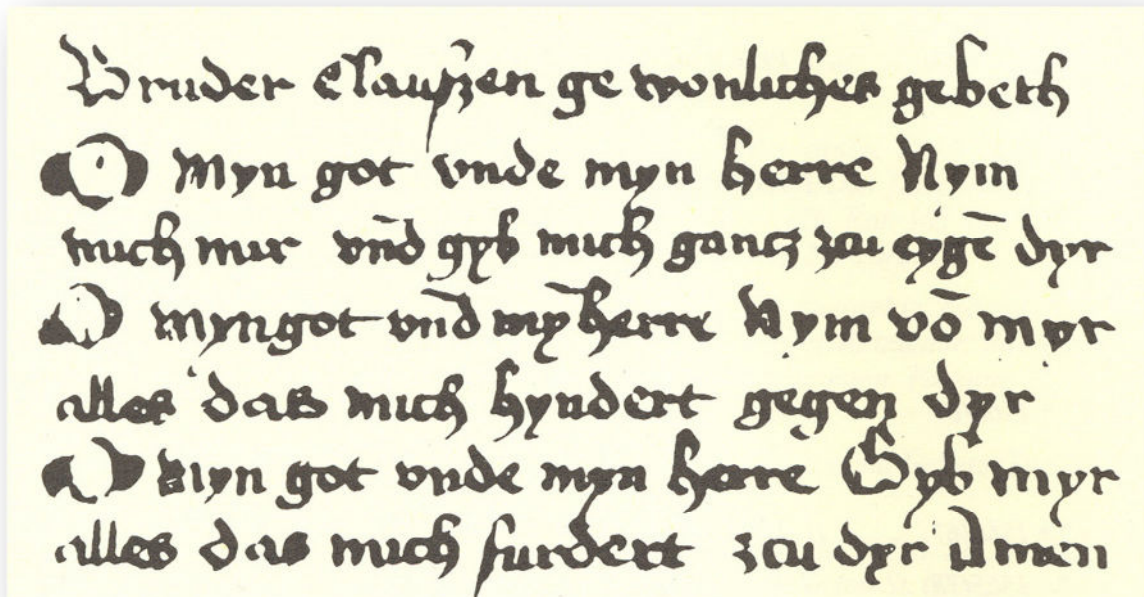 Bruder Claußen gewonliches gebeth
O Myn got vnde myn herre Nym
mich mir vnd̄ gyb mich gantz zcu eygē dyr
O myn got vnd̄ mȳ herre Nym vō myr
alles das mich hyndert gegen dyr
O Myn got vnde myn herre Gyb myr
alles das mich furdert zcu dyr Amen